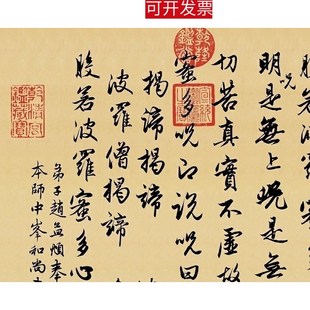 可开发票
若波羅蜜
明呪是無上呪是無
切苦真實不虛故
蜜多呪即說呪曰
揭諦揭諦
波羅僧揭諦
般若波羅蜜多心
弟子趙孟頫奉
本師中峯和尚